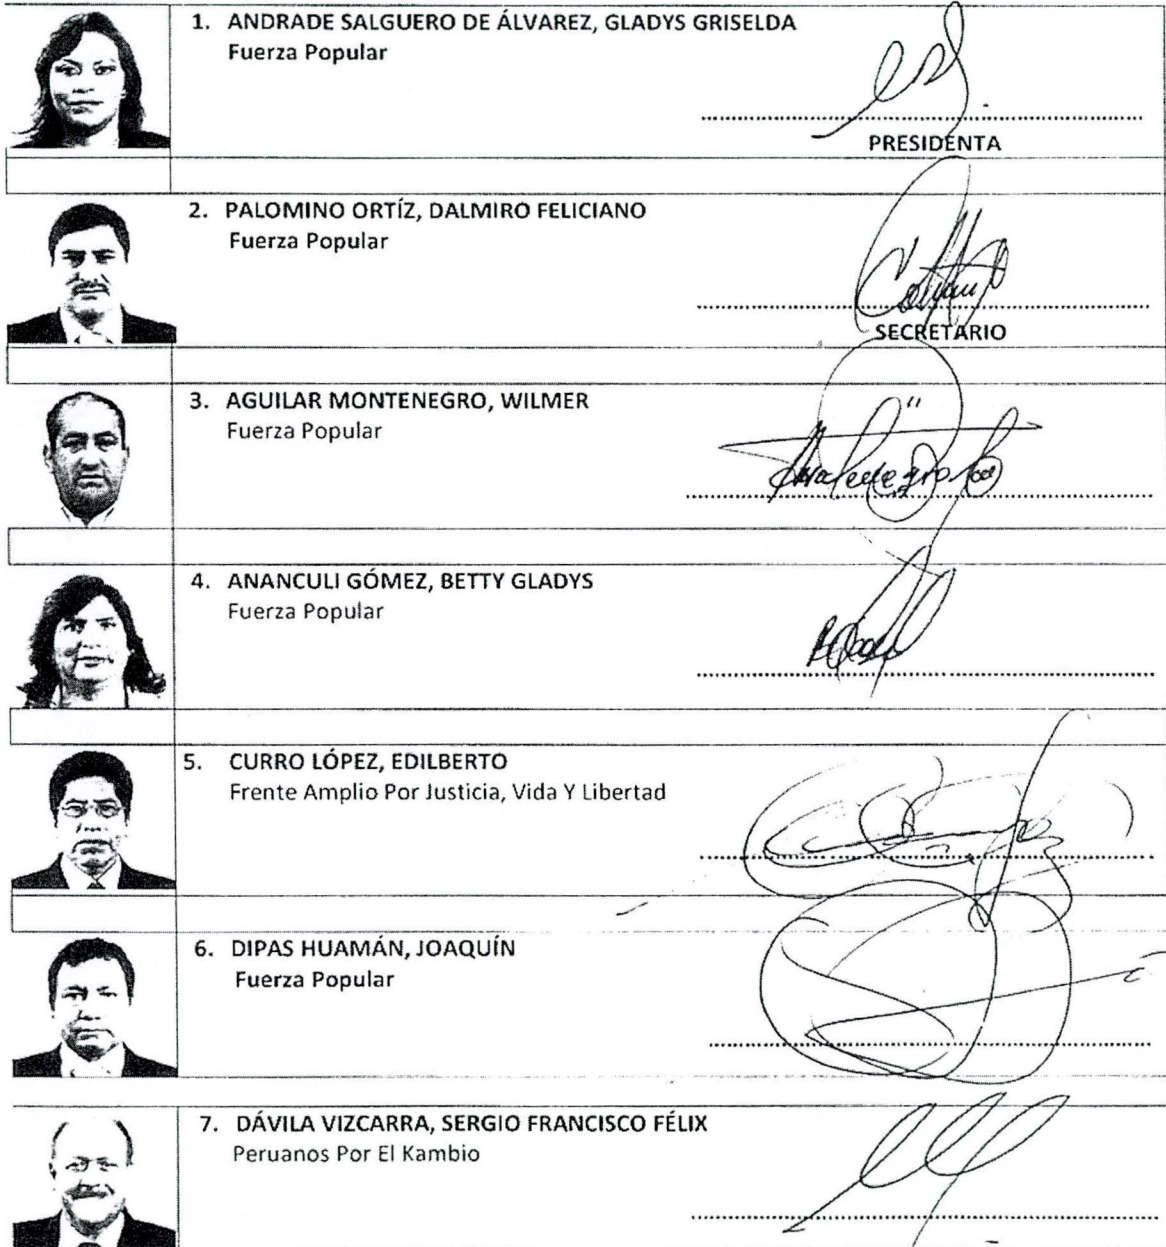 1. ANDRADE SALGUERO DE ÁLVAREZ, GLADYS GRISELDA
Fuerza Popular
PRESIDENTA
2. PALOMINO ORTÍZ, DALMIRO FELICIANO
Fuerza Popular
SECRETARIO
3. AGUILAR MONTENEGRO, WILMER
Fuerza Popular
4. ANANCULI GÓMEZ, BETTY GLADYS
Fuerza Popular
5. CURRO LÓPEZ, EDILBERTO
Frente Amplio Por Justicia, Vida Y Libertad
6. DIPAS HUAMÁN, JOAQUÍN
Fuerza Popular
7. DÁVILA VIZCARRA, SERGIO FRANCISCO FÉLIX
Peruanos Por El Kambio